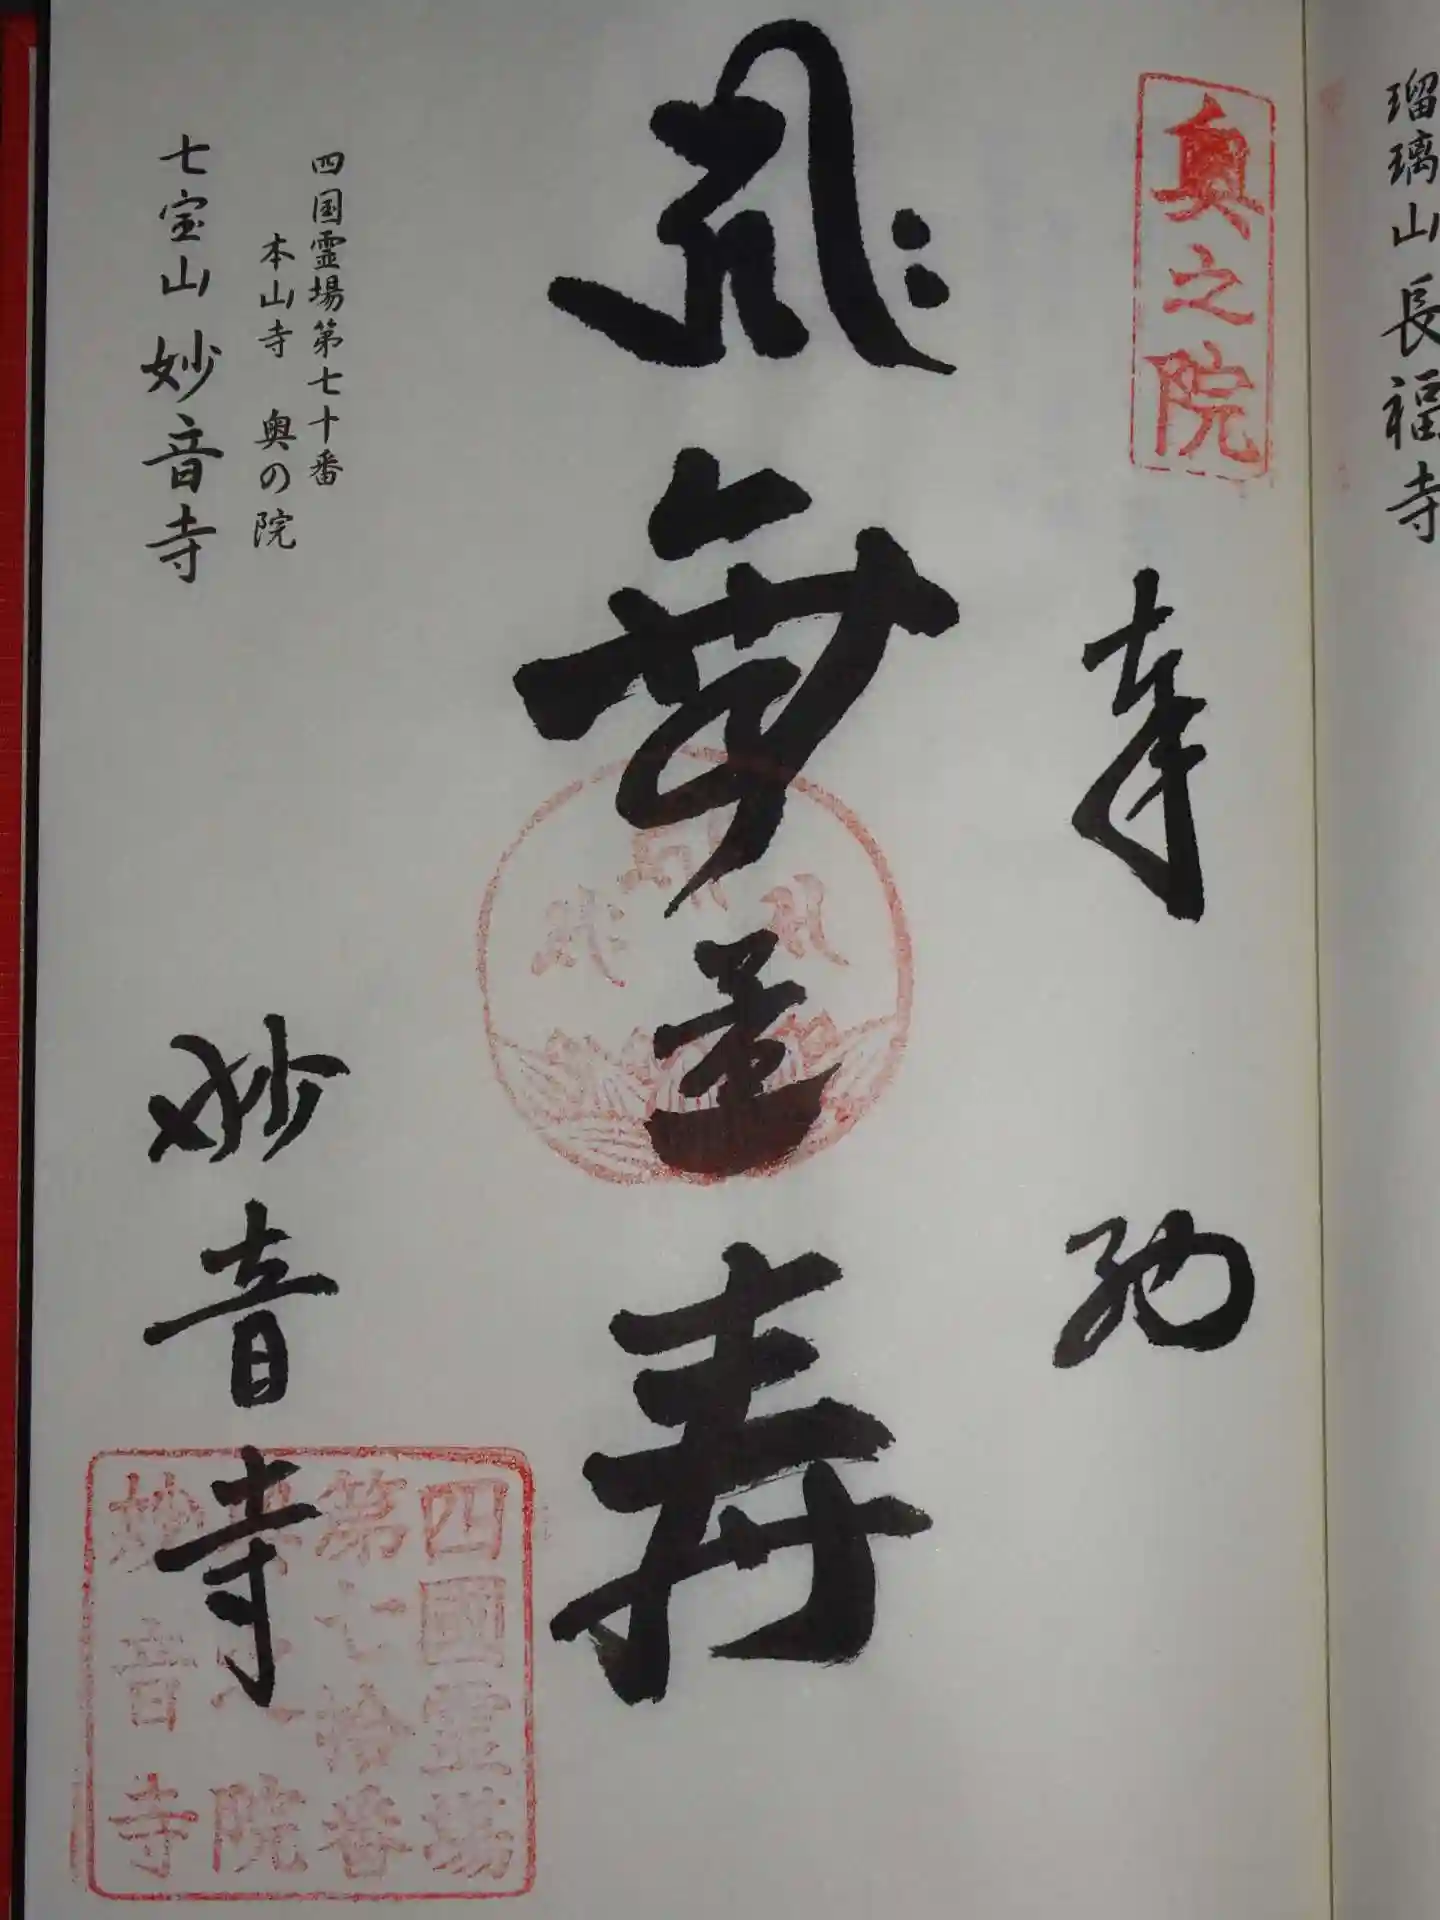 瑠璃山長福寺
奥之院
奉納
𑖮𑖿𑖨𑖱𑖾
無量寿
四国霊場第七十番
本山寺 奥の院
七宝山 妙音寺
妙音寺
四國霊場
第七拾番
奥之院
妙音寺